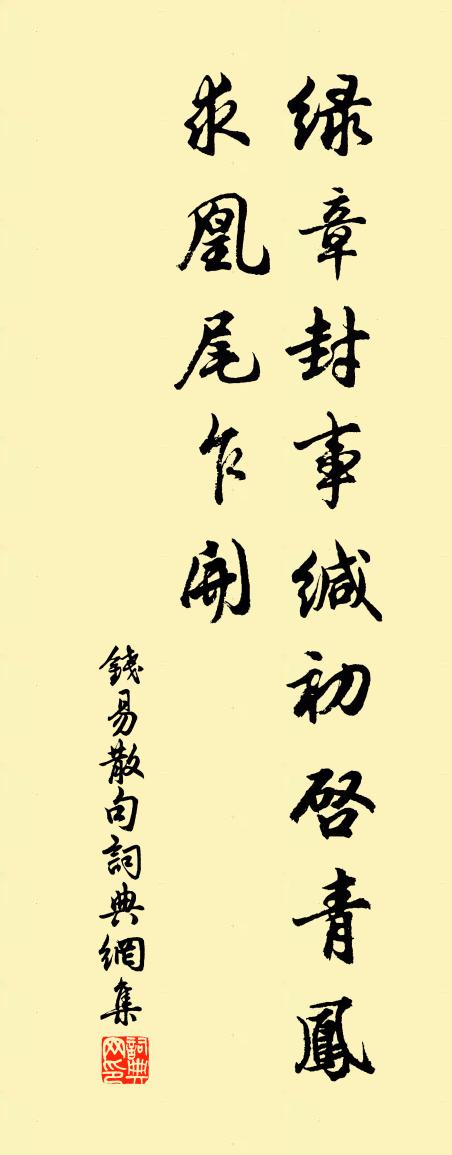 绿章封事缄初启青鳳
求凰尾乍開
錢易散句詞典網集
詞典网印